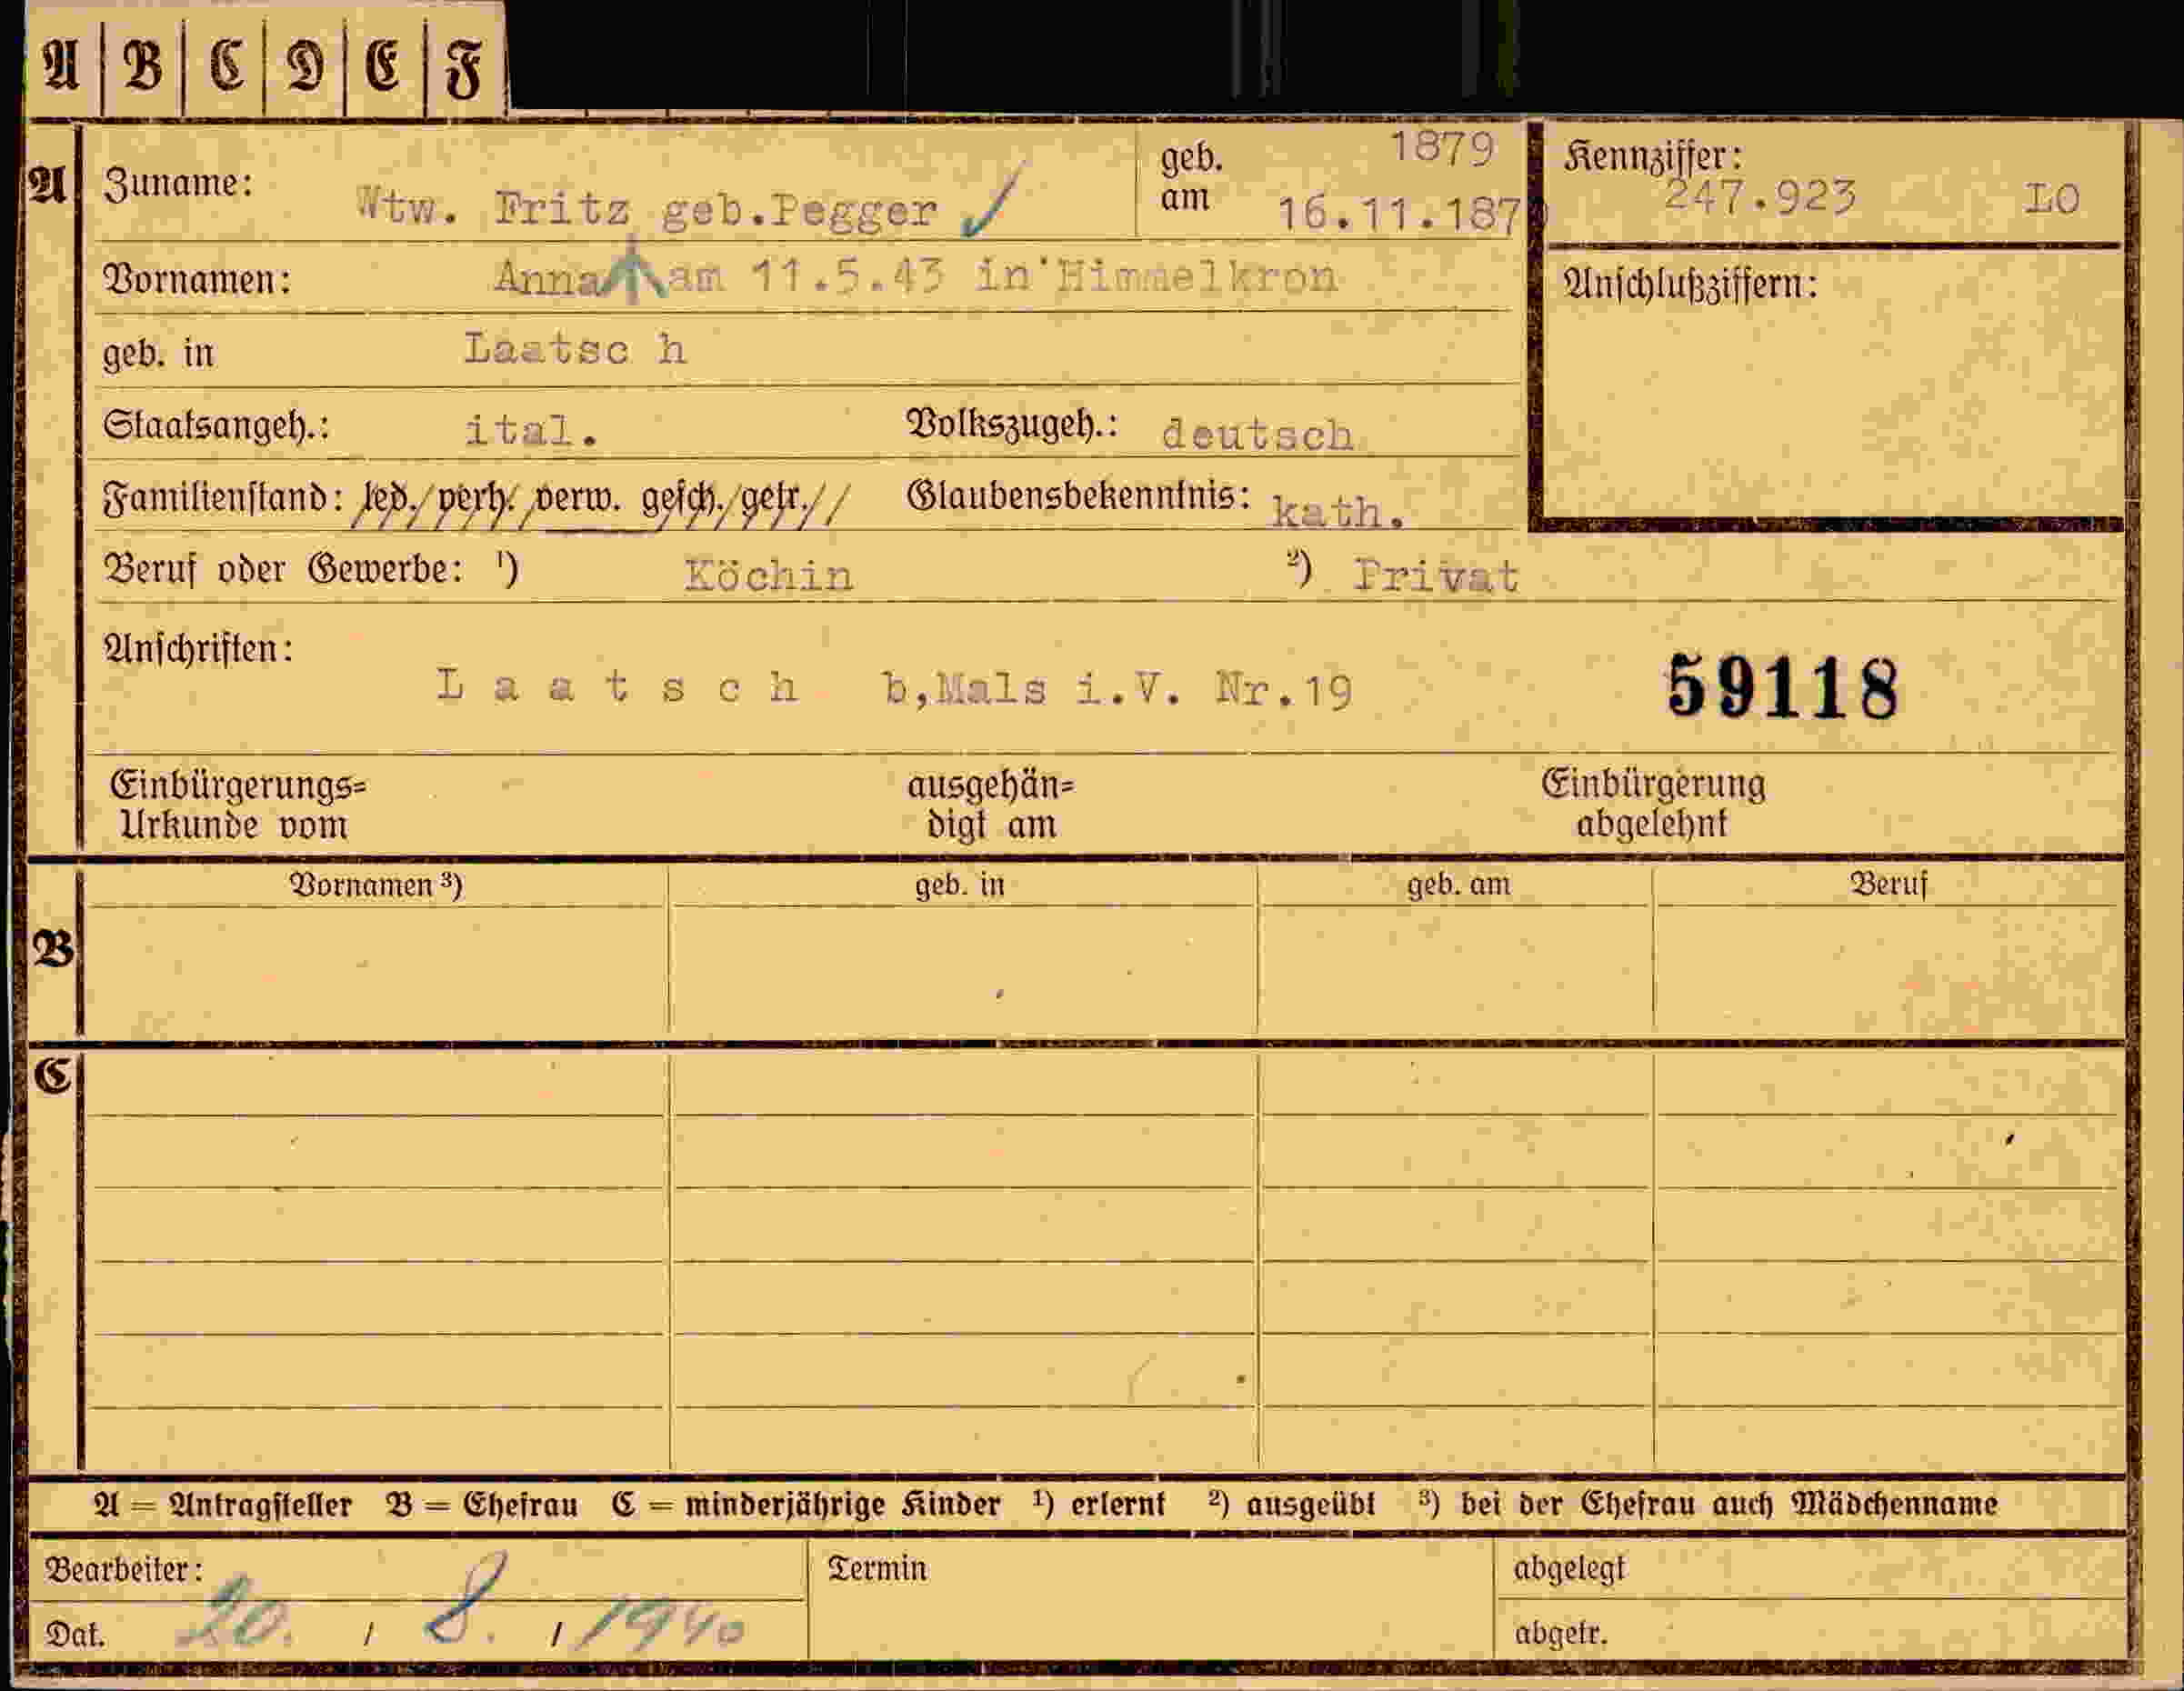 A B C D E F
A
Zuname: Wtw. Fritz geb.Pegger
geb. am 1879
16.11.187
Kennziffer: 247.923 LO
Vornamen: Anna am 11.5.43 in Himmelkron
Anschlußziffern:
geb. in Laatsc h
Staatsangeh.: ital. Volkszugeh.: deutsch
Familienstand: led./verh./verw. gesch./getr. Glaubensbekenntnis: kath.
Beruf oder Gewerbe: ¹) Köchin ²) Privat
Anschriften:
L a a t s c h b,Mals i.V. Nr.19 59118
Einbürgerungs= ausgehän= Einbürgerung
Urkunde vom digt am abgelehnt
B
Vornamen ³) geb. in geb. am Beruf
C
A = Antragsteller B = Ehefrau C = minderjährige Kinder ¹) erlernt ²) ausgeübt ³) bei der Ehefrau auch Mädchenname
Bearbeiter: Termin abgelegt
Dat. 20. / 8. / 1940 abgetr.